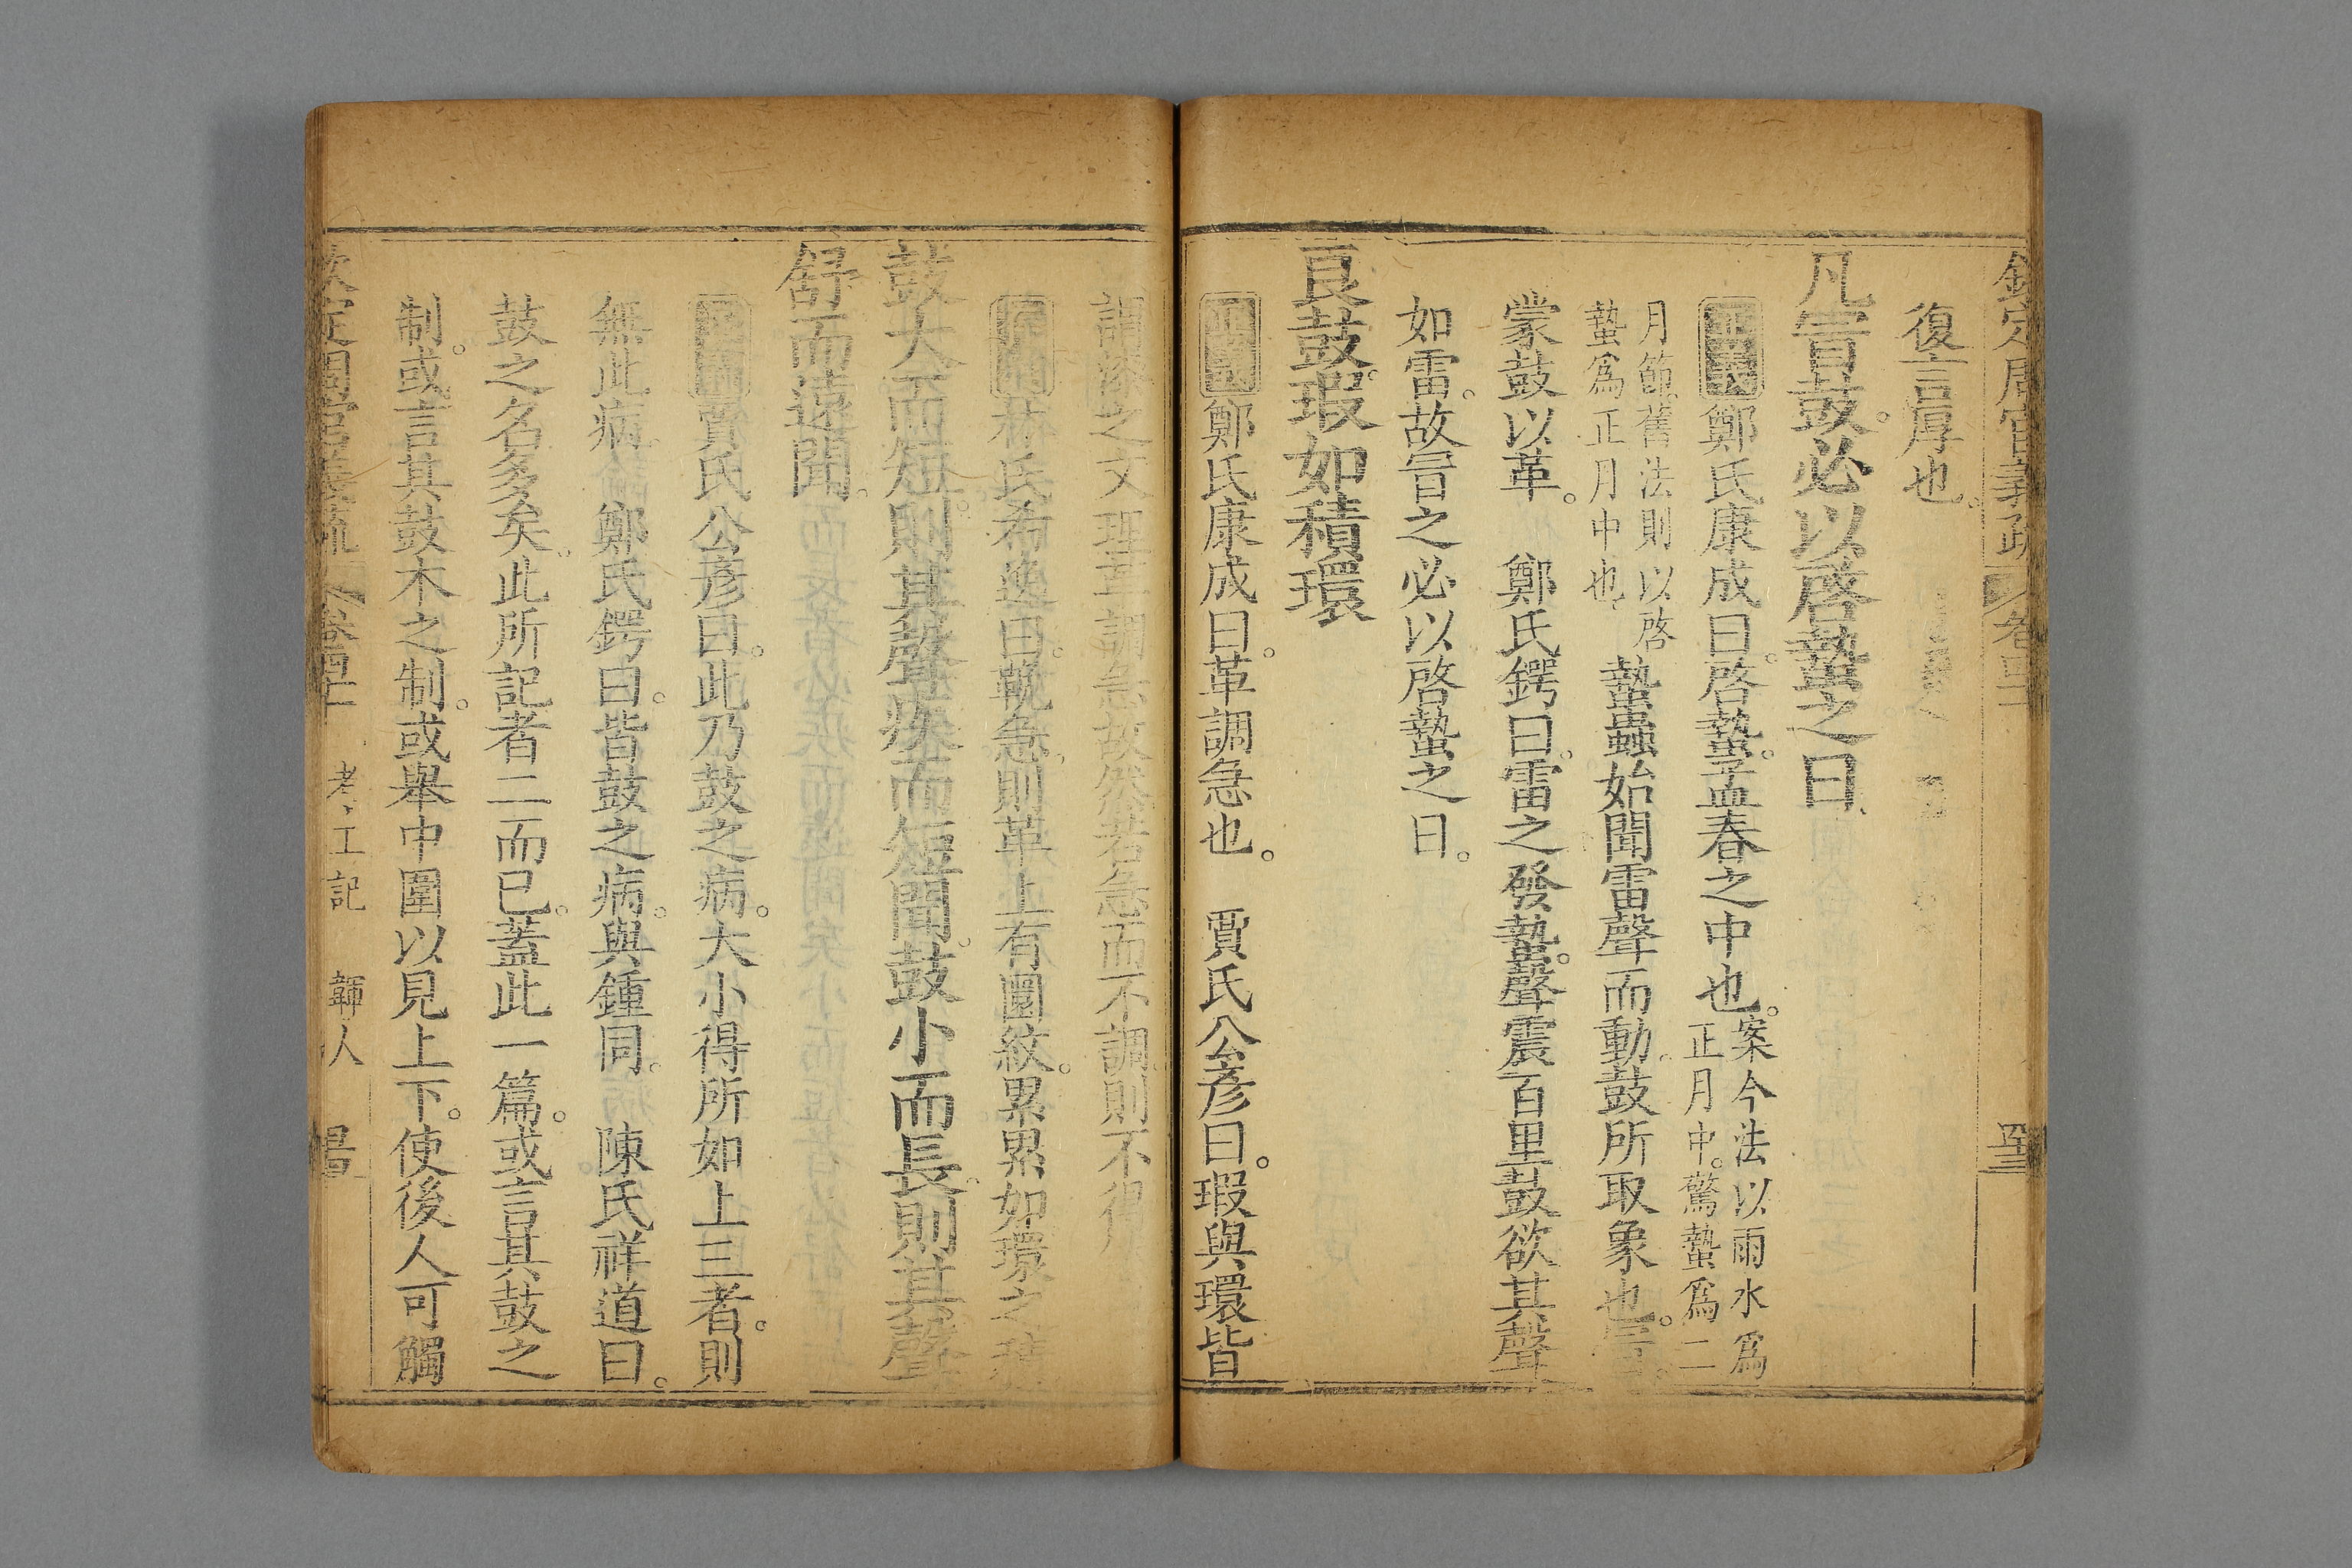 欽定周官義疏 卷四十 
復言厚也。
凡冒鼓。必以啓蟄之日
正義 鄭氏康成曰。啓蟄。孟春之中也。案今法以雨水爲正月中。驚蟄爲二
月節。舊法則以啓蟄爲正月中也 蟄蟲始聞雷聲而動。鼓所取象也。冒。
蒙鼓以革。 鄭氏鍔曰。雷之發蟄。聲震百里。鼓欲其聲
如雷。故冒之必以啓蟄之日。
良鼓。瑕如積環
正義 鄭氏康成曰。革調急也。 賈氏公彥曰。瑕與環。皆
謂漆之文理。革調急故然。若急而不調。則不得
林氏希逸曰。鞔急。則革上有圜紋。累累如環之積
鼓大而短。則其聲疾而短聞。鼓小而長。則其聲
舒而遠聞。
賈氏公彥曰。此乃鼓之病。大小得所如上三者。則
無此病。 鄭氏鍔曰。皆鼓之病。與鍾同。 陳氏祥道曰。
鼓之名多矣。此所記者二而已。蓋此一篇。或言其鼓之
制。或言其鼓木之制。或舉中圍以見上下。使後人可觸
欽定周官義疏 卷四十 考工記 韗人